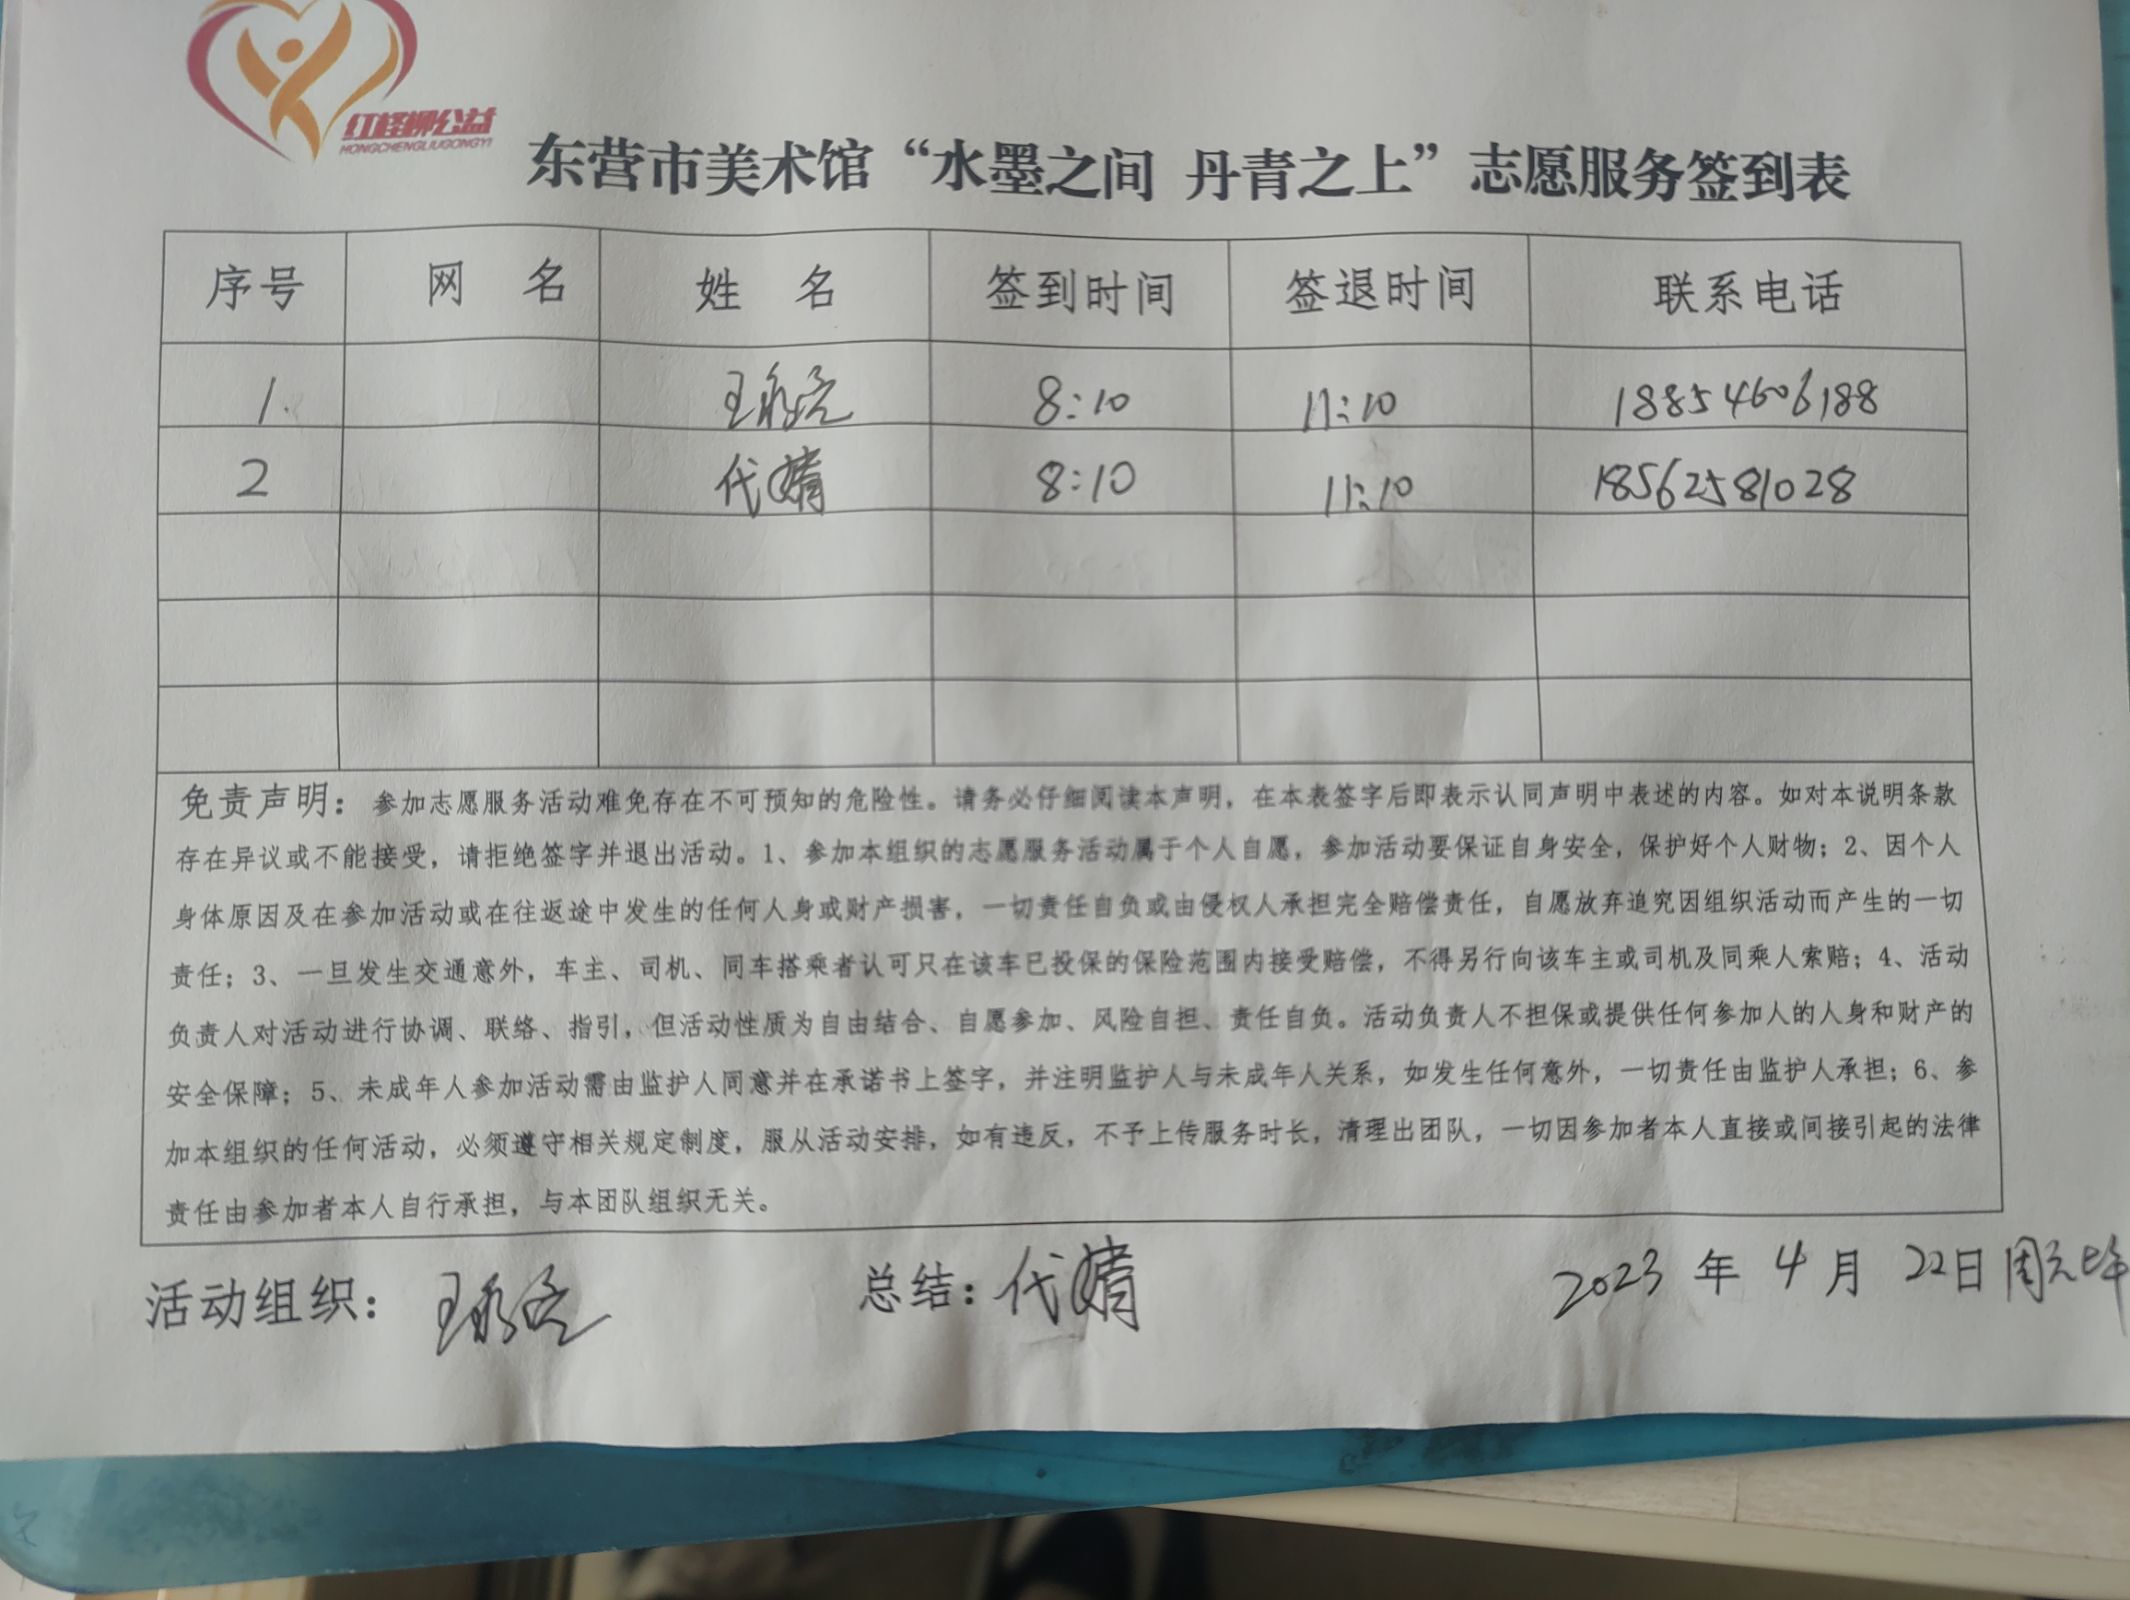 红柽柳公益
HONGCHENGLIUGONGYI
东营市美术馆“水墨之间 丹青之上”志愿服务签到表
序号 网 名 姓 名 签到时间 签退时间 联系电话
1. 王 8:10 11:10 18854606188
2 代婧 8:10 11:10 18562581028
免责声明：参加志愿服务活动难免存在不可预知的危险性。请务必仔细阅读本声明，在本表签字后即表示认同声明中表述的内容。如对本说明条款
存在异议或不能接受，请拒绝签字并退出活动。1、参加本组织的志愿服务活动属于个人自愿，参加活动要保证自身安全，保护好个人财物；2、因个人
身体原因及在参加活动或在往返途中发生的任何人身或财产损害，一切责任自负或由侵权人承担完全赔偿责任，自愿放弃追究因组织活动而产生的一切
责任；3、一旦发生交通意外，车主、司机、同车搭乘者认可只在该车已投保的保险范围内接受赔偿，不得另行向该车主或司机及同乘人索赔；4、活动
负责人对活动进行协调、联络、指引，但活动性质为自由结合、自愿参加、风险自担、责任自负。活动负责人不担保或提供任何参加人的人身和财产的
安全保障；5、未成年人参加活动需由监护人同意并在承诺书上签字，并注明监护人与未成年人关系，如发生任何意外，一切责任由监护人承担；6、参
加本组织的任何活动，必须遵守相关规定制度，服从活动安排，如有违反，不予上传服务时长，清理出团队，一切因参加者本人直接或间接引起的法律
责任由参加者本人自行承担，与本团队组织无关。
活动组织：王 总结：代婧 2023 年 4 月 22日周六上午